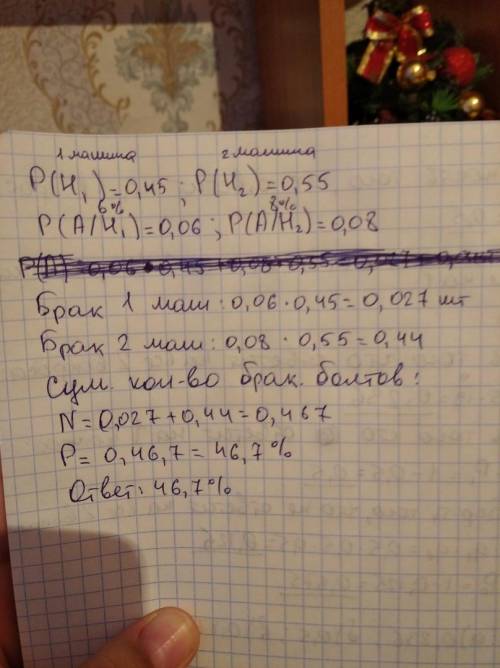 1 машина 2 машина
P(H₁)=0,45 ; P(H₂)=0,55
6% 8%
P(A/H₁)=0,06 ; P(A/H₂)=0,08
Брак 1 маш : 0,06·0,45=0,027 шт
Брак 2 маш : 0,08 · 0,55=0,44
Сум. кол-во брак. болтов :
N=0,027+0,44=0,467
P= 0,46,7= 46,7%
Ответ: 46,7%